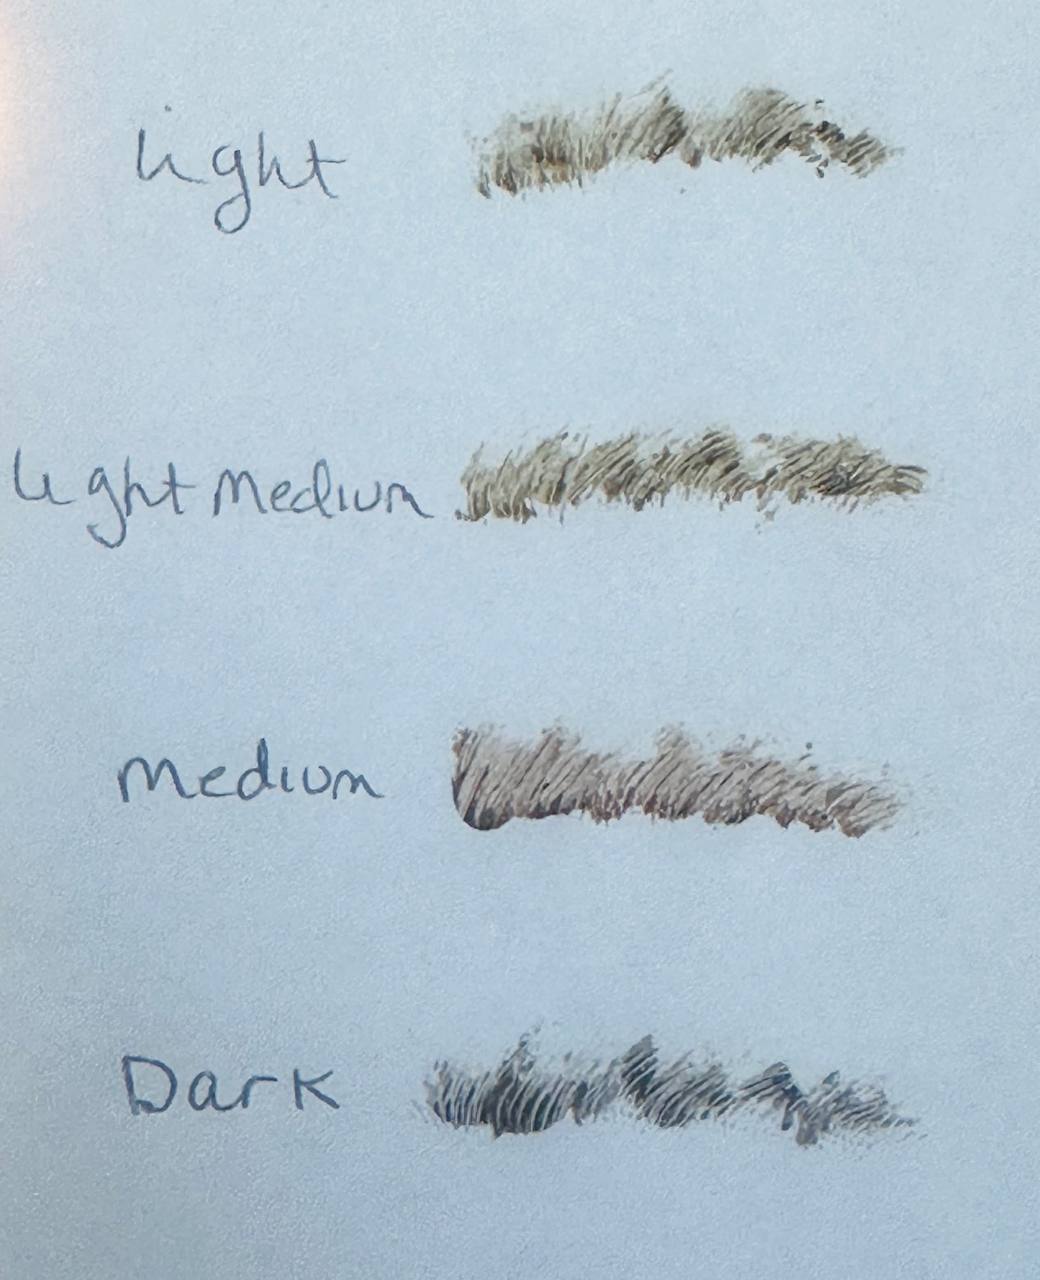 light
light Medium
Medium
Dark